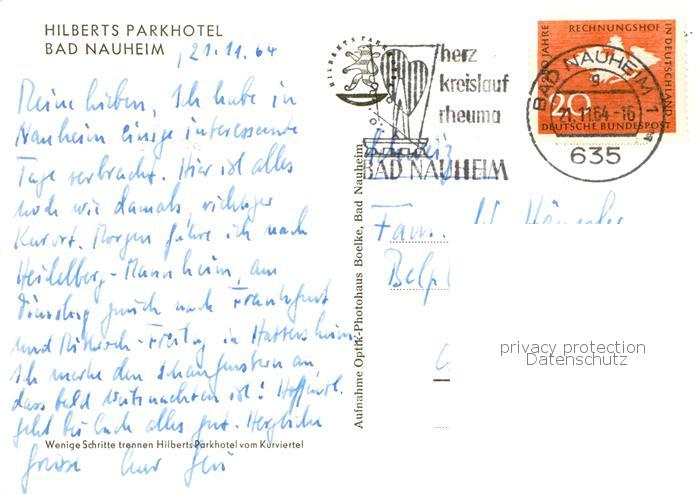 HILBERTS PARKHOTEL
BAD NAUHEIM
21.11.64
Meine Lieben, Ich habe in
Nauheim einige interessante
Tage verbracht. Hier ist alles
noch wie damals, richtiger
Kurort. Morgen fahre ich nach
Heidelberg - Mannheim, am
Dienstag zurück nach Frankfurt
und Mittwoch - Freitag in Hattersheim
Ich merke den Schaufenstern an,
dass bald Weihnachten ist! Hoffentl.
geht bei Euch alles gut. Herzliche
Wenige Schritte trennen Hilberts Parkhotel vom Kurviertel
Grüsse Euer
Aufnahme Optik-Photohaus Boelke, Bad Nauheim
HILBERTS PARK
herz
kreislauf
rheuma
BAD NAUHEIM
250 JAHRE RECHNUNGSHOF IN DEUTSCHLAND
20
DEUTSCHE BUNDESPOST
BAD NAUHEIM 1
g
21.11.64-16
635
Schweiz
Fam.
Belp
privacy protection
Datenschutz